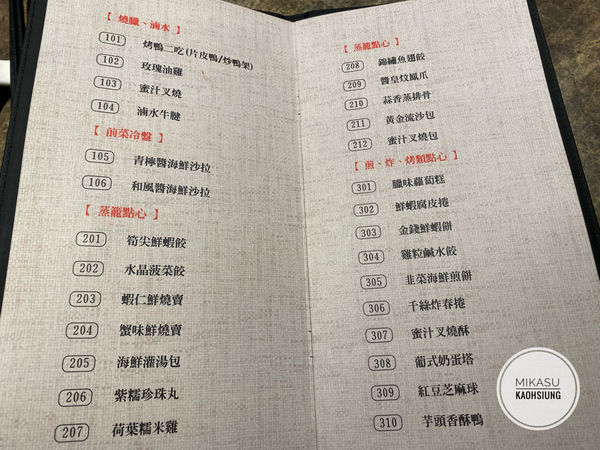 【 燒臘、滷水 】
101 烤鴨二吃(片皮鴨/炒鴨架)
102 玫瑰油雞
103 蜜汁叉燒
104 滷水牛腱
【 前菜冷盤 】
105 青檸醬海鮮沙拉
106 和風醬海鮮沙拉
【 蒸籠點心 】
201 筍尖鮮蝦餃
202 水晶菠菜餃
203 蝦仁鮮燒賣
204 蟹味鮮燒賣
205 海鮮灌湯包
206 紫糯珍珠丸
207 荷葉糯米雞
【 蒸籠點心 】
208 錦繡魚翅餃
209 醬皇炆鳳爪
210 蒜香蒸排骨
211 黃金流沙包
212 蜜汁叉燒包
【 煎、炸、烤類點心 】
301 臘味蘿蔔糕
302 鮮蝦腐皮捲
303 金錢鮮蝦餅
304 雞粒鹹水餃
305 韭菜海鮮煎餅
306 千絲炸春捲
307 蜜汁叉燒酥
308 葡式奶蛋塔
309 紅豆芝麻球
310 芋頭香酥鴨
MIKASU
KAOHSIUNG